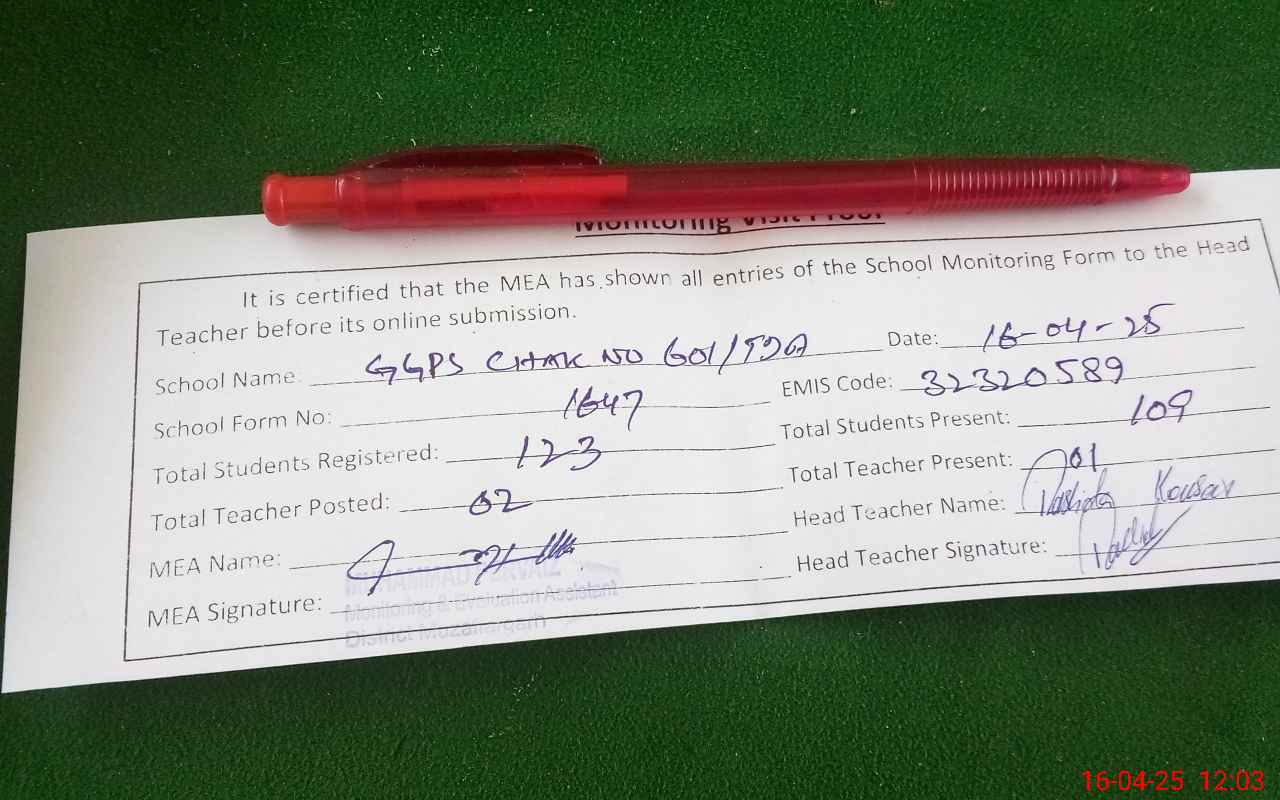 Monitoring Visit Proof
It is certified that the MEA has shown all entries of the School Monitoring Form to the Head
Teacher before its online submission.
School Name: GGPS CHAK NO 601/TDA Date: 16-04-25
School Form No: 1647 EMIS Code: 32320589
Total Students Registered: 123 Total Students Present: 109
Total Teacher Posted: 02 Total Teacher Present: 01
MEA Name: Head Teacher Name: Kousar
MEA Signature: Head Teacher Signature:
MUHAMMAD
Monitoring & Evaluation Assistant
District Muzaffargarh
16-04-25 12:03